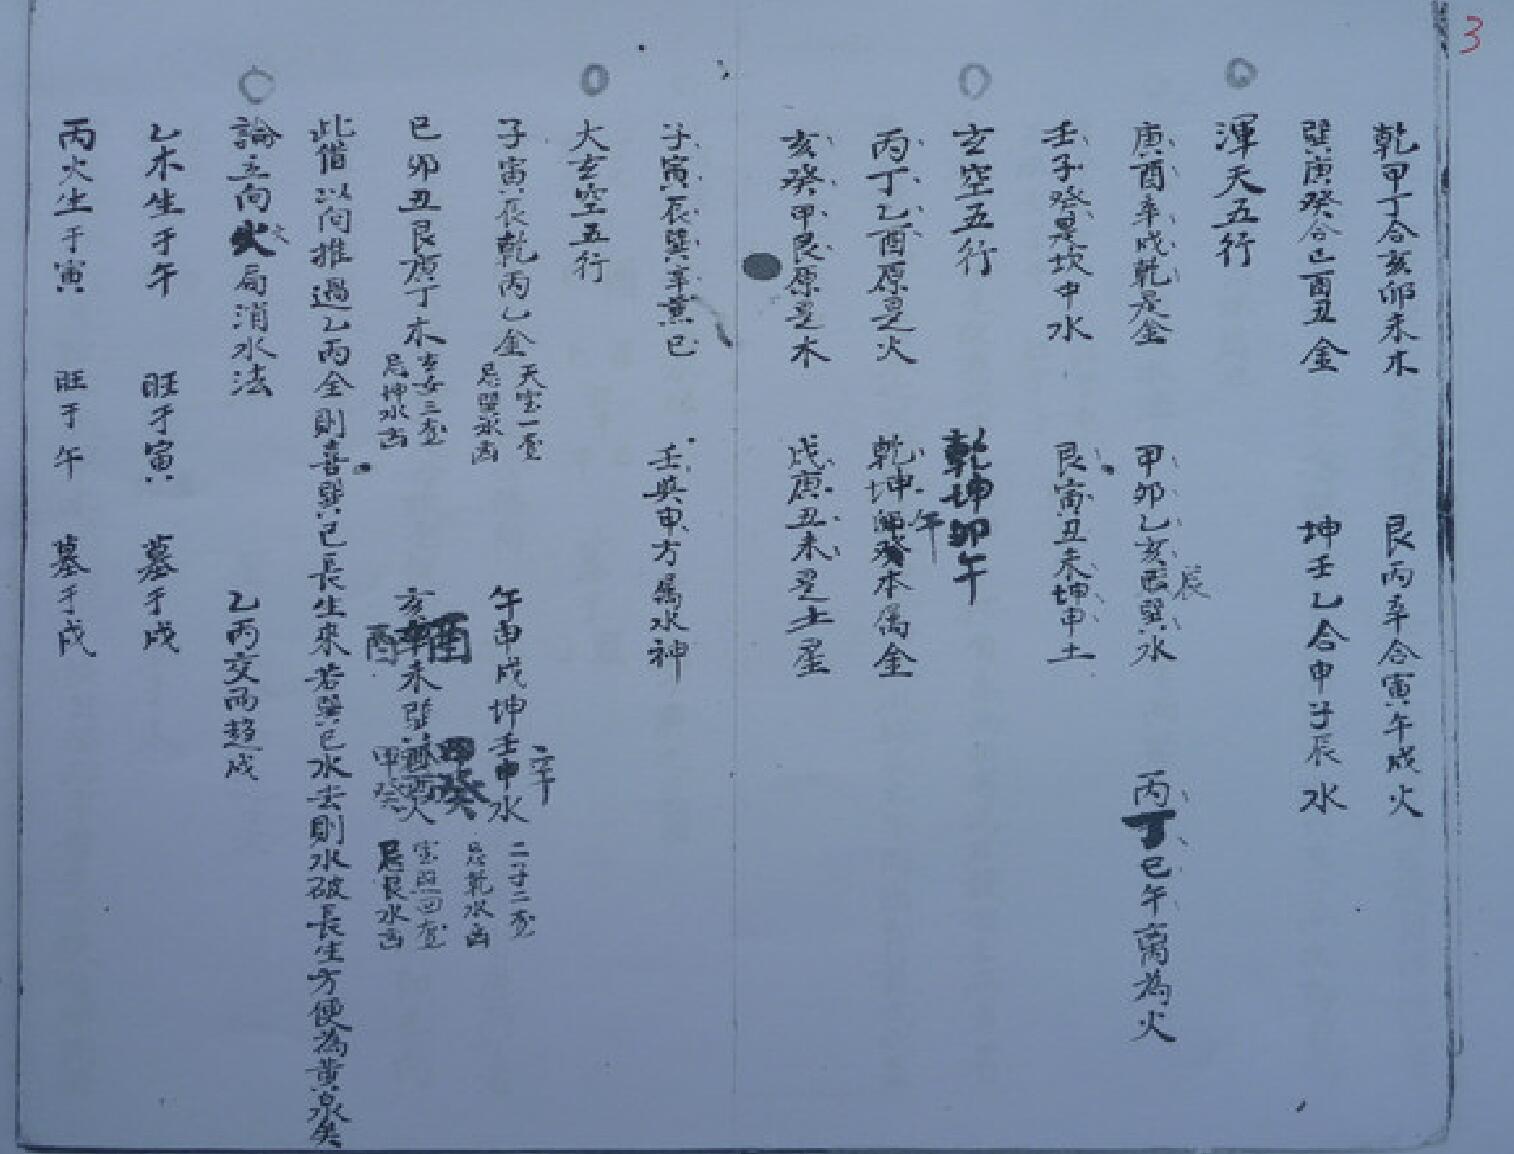 3
乾甲丁合亥卯未木　艮丙辛合寅午戌火
巽庚癸合巳酉丑金　坤壬乙合申子辰水
渾天五行
庚酉辛戌乾是金　甲卯乙亥巽水　辰　丙丁巳午离為火
壬子癸是坎中水　艮寅丑未坤申土
玄空五行　乾坤卯午
丙丁乙酉原是火　乾坤卯癸本属金　午
亥癸甲艮原是木　戌庚丑未是土星
子寅辰巽辛兼巳　壬與申方属水神
大玄空五行
子寅辰乾丙乙金　天宝一　忌巽水　午申戌坤壬申水　辛　忌乾水
巳卯丑艮庚丁木　三　忌坤水　亥未巽火　酉　酉　甲癸　甲癸　忌艮水
此借以向推過乙丙全則喜巽巳長生來若巽巳水去則水破長生方便為黄泉矣
論立向火局消水法　乙丙交而趋戌
乙木生于午　旺于寅　墓于戌
丙火生于寅　旺于午　墓于戌